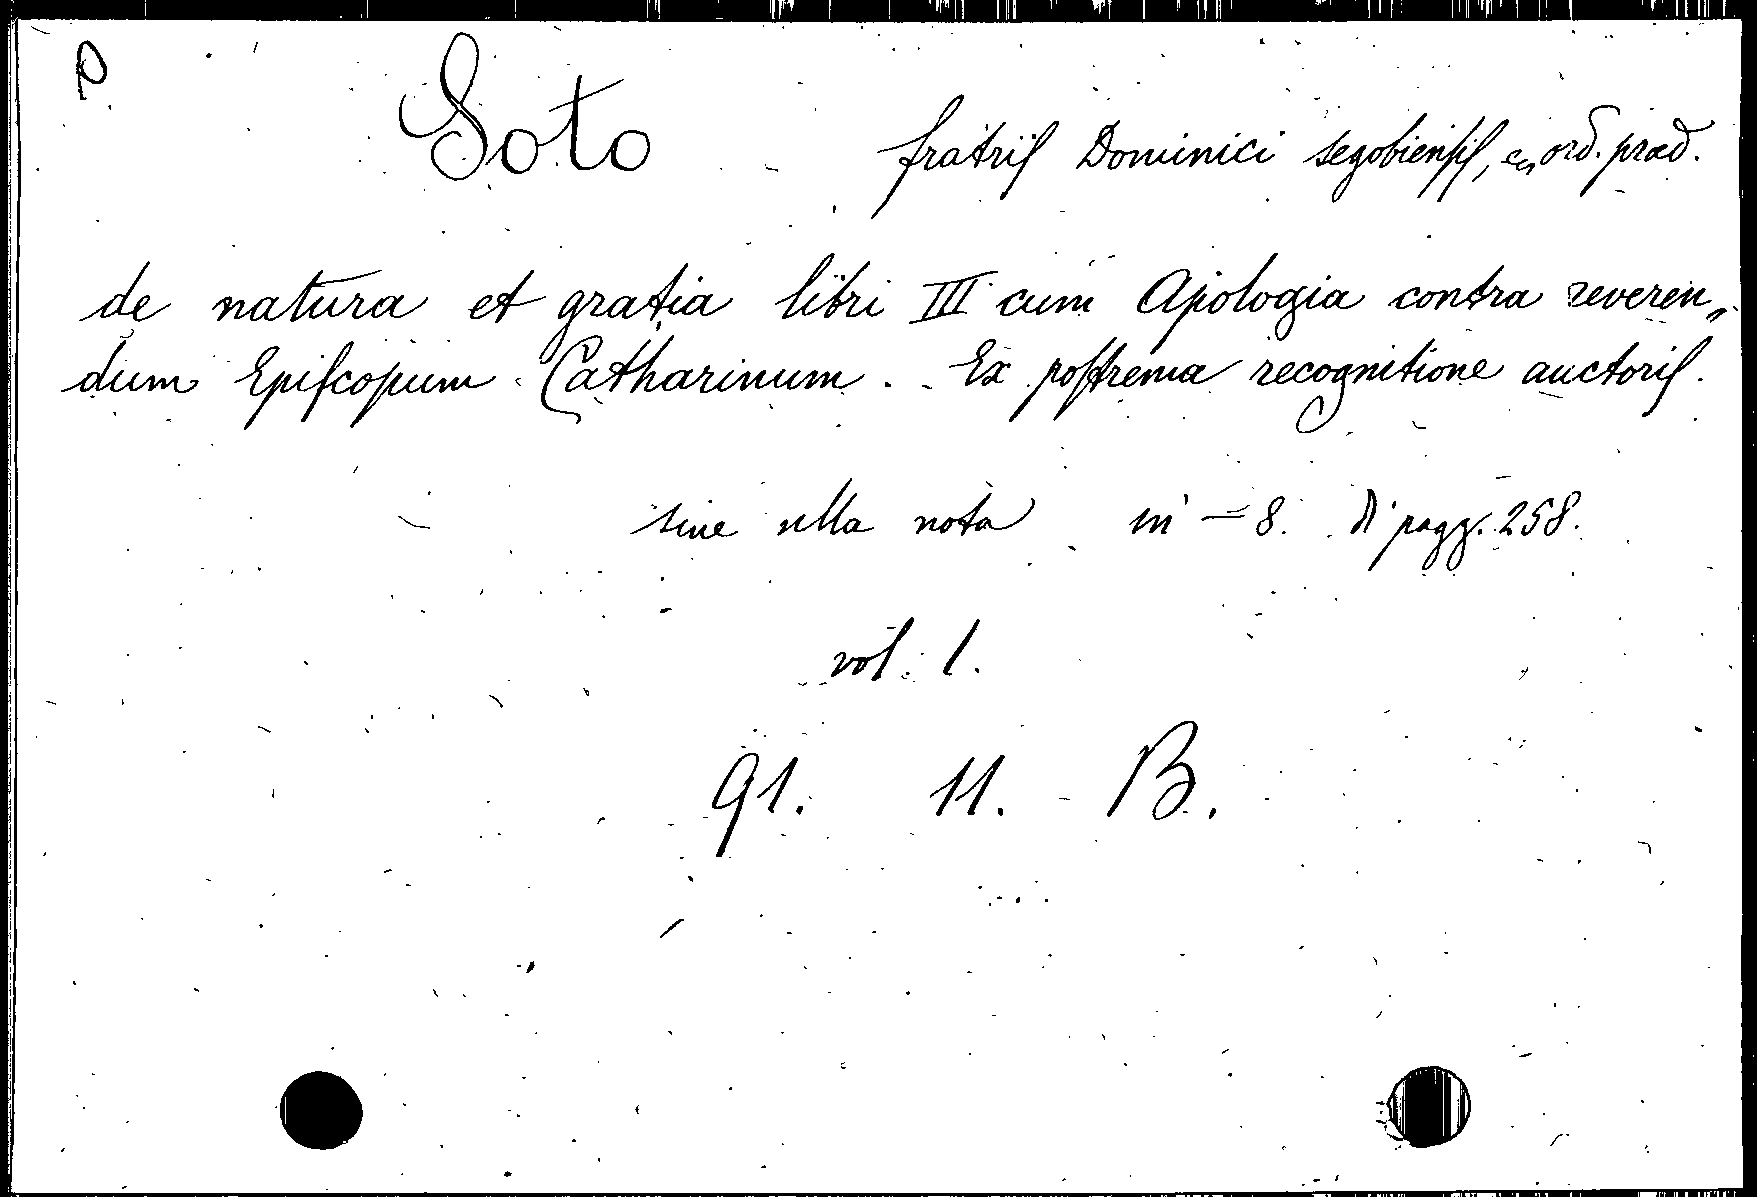 Soto fratriſ Dominici segobienſiſ, ex ord. præd.
de natura et gratia libri III cum Apologia contra reveren„
dum Epiſcopum Catharinum. Ex poſtrema recognitione auctoriſ.
sine ulla nota in = 8. di pagg. 258.
vol. 1.
91. 11. B.